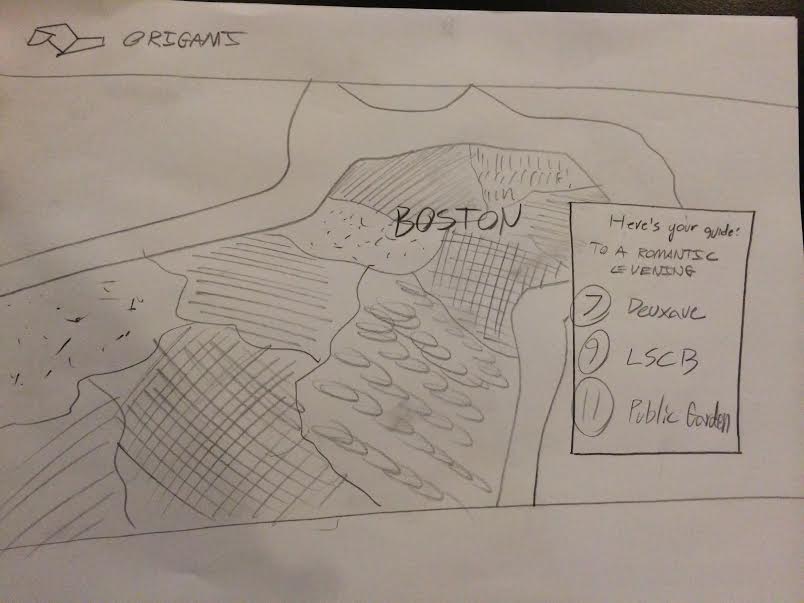 ORIGAMI
BOSTON
Here's your guide:
TO A ROMANTIC
EVENING
7 Deuxave
9 LSCB
11 Public Garden